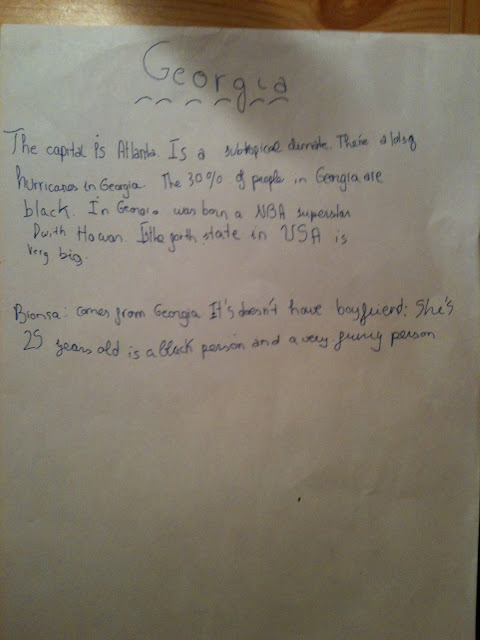 Georgia
The capital is Atlanta. Is a subtropical climate. There a lots of
hurricanes in Georgia. The 30% of people in Georgia are
black. In Georgia was born a NBA superstar
Dwith Howar. Is the forth state in USA is
very big.
Bionsa: comes from Georgia It's doesn't have boyfriend: She's
25 years old is a black person and a very funny person